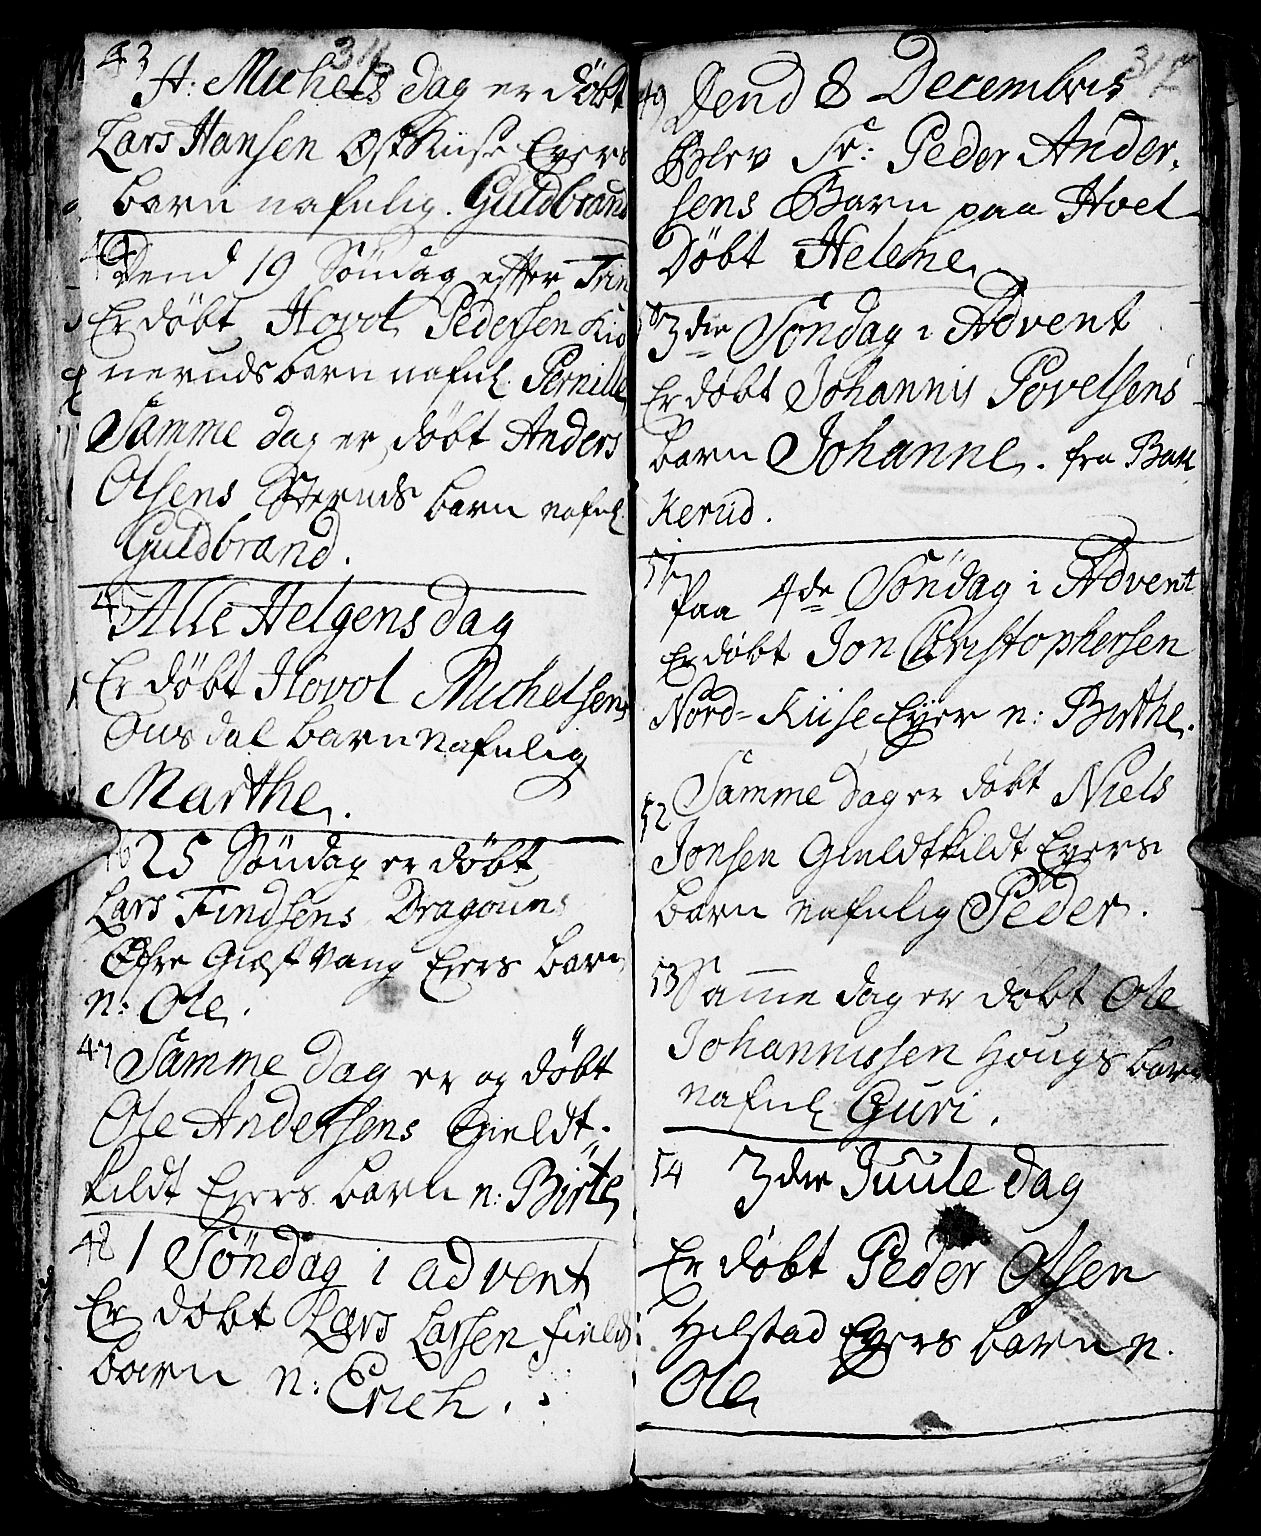 43 316
St: Michels dag er døbt
Lars Hansen Østkiise Eyers
barn nafnlig. Guldbrand
44
Dend 19 Søndag efter Trin
Er døbt Hovol Pedersen
neruds barn nafnl. Pernille
Samme dag er døbt Anders
Olsens barn nafnl
Guldbrand.
45
Alle Helgens dag
Er døbt Hovol Michelsens
Ousdal barn nafnlig
Marthe.
46 25 Søndag er døbt
Lars Findsens Dragouns
Øfre Giæstvang Eyers barn
n: Ole.
47 Samme dag er og døbt
Ole Andersens Gieldt-
kildt Eyers barn n: Birte
48 1 Søndag i advent
Er døbt Lars Larsen fields
barn n: Erich.
317
49 Dend 8 Decembris
Blev Sr: Peder Ander-
sens Barn paa Hoel
Døbt Helene
50
3die Søndag i Advent
Er døbt Johannis Povelsens
barn Johanne. fra Bak
kerud.
51
Paa 4de Søndag i Advent
Er døbt Jon Christophersen
Nord-Kiise Eyer n: Birthe.
52 Samme dag er døbt Niels
Jonsen Gieldtkildt Eyers
barn nafnlig Peder.
53 Samme dag er døbt Ole
Johannissen Hougs barn
nafnl Guri.
54 3die Juule dag
Er døbt Peder Olsen
Hilstad Eyers barn n.
Ole